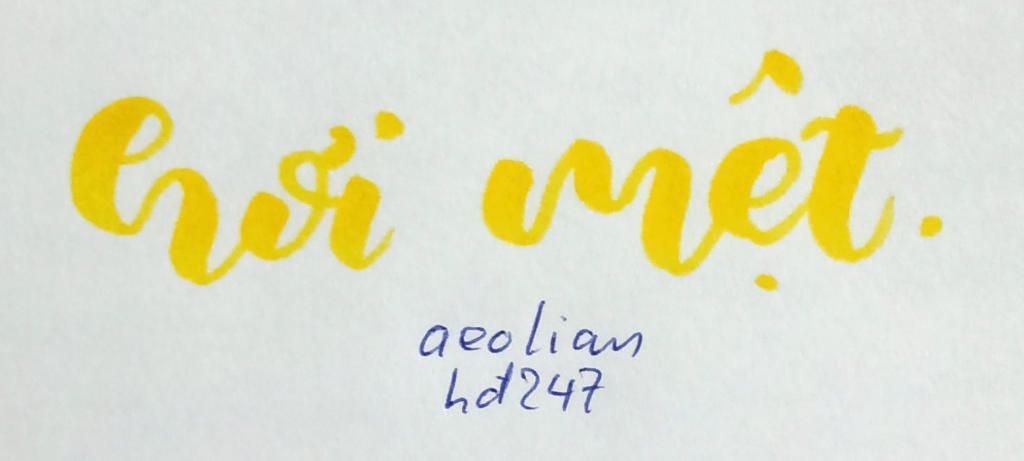 hơi mệt.
aeolian
hđ247